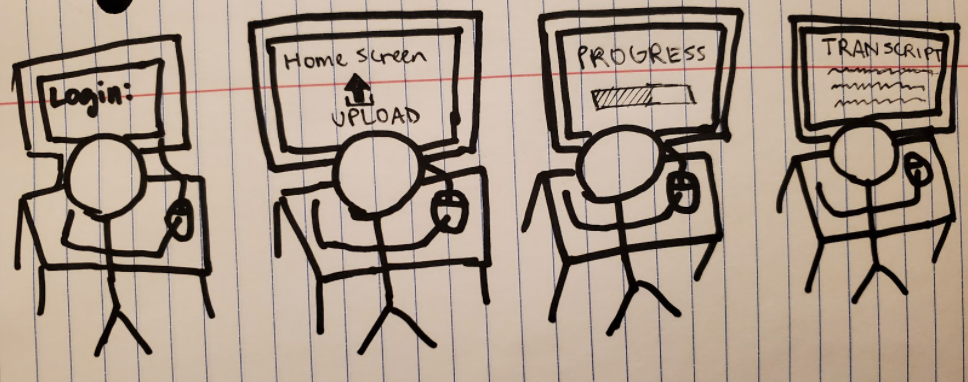 Login:
Home Screen
UPLOAD
PROGRESS
TRANSCRIPT